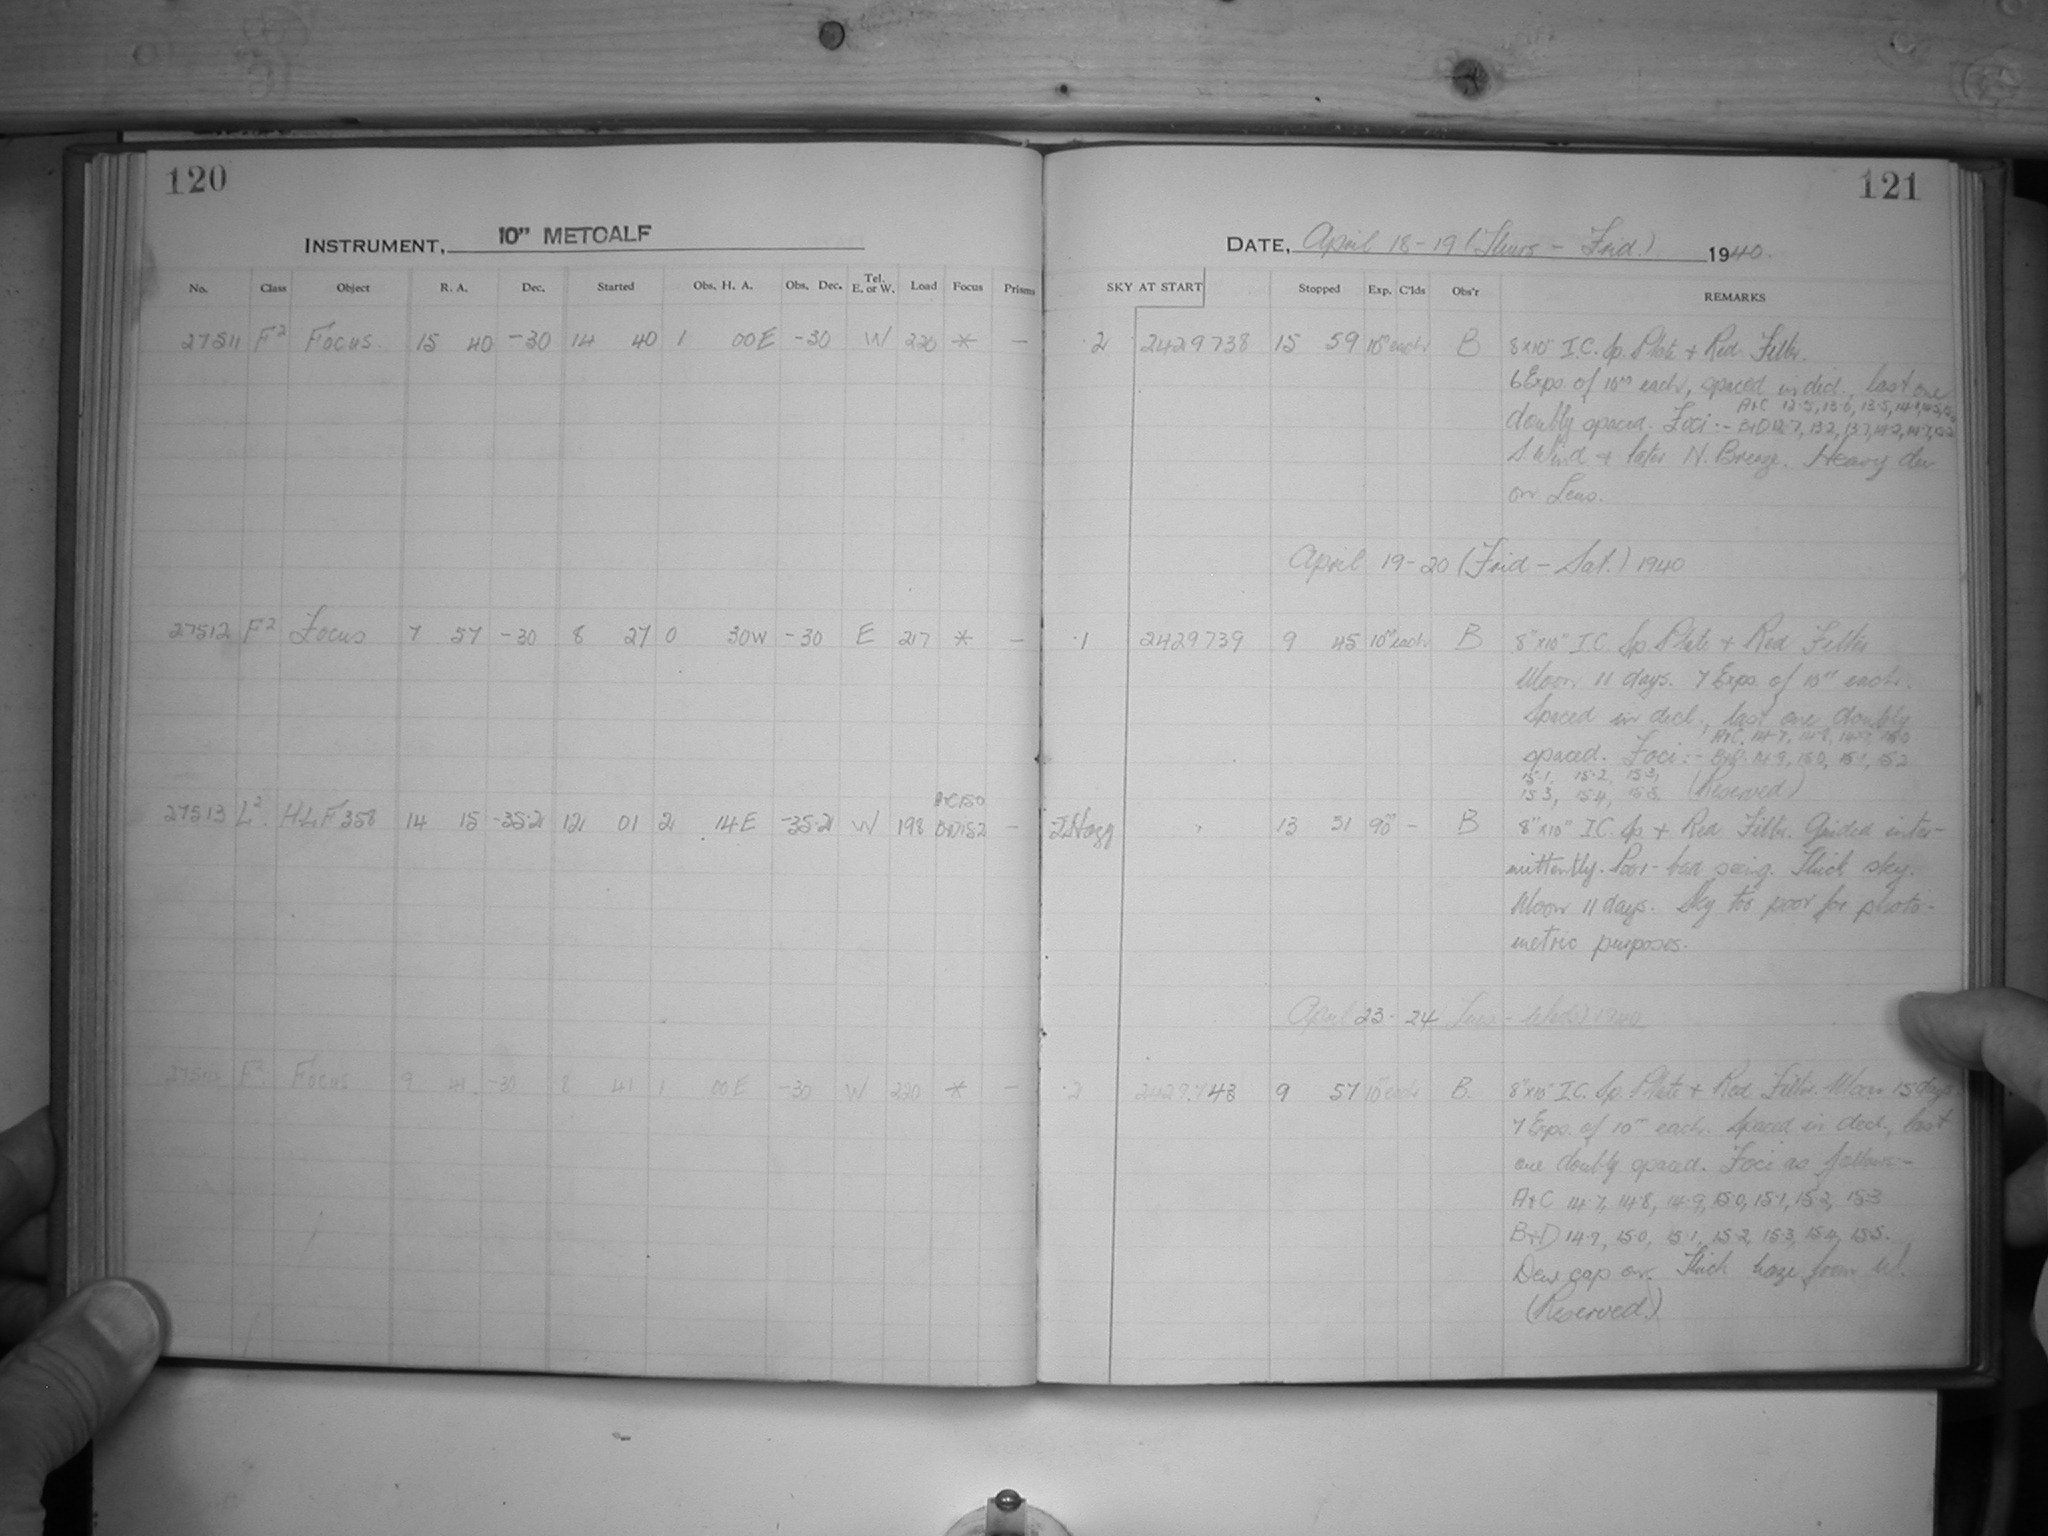 120
INSTRUMENT, 10" METCALF
No. Class Object R. A. Dec. Started Obs. H. A. Obs. Dec. Tel. E. or W. Load Focus Prisms
27511 F2 Focus. 15 40 -30 14 40 1 00E -30 W 220 * —
27512 F2 Focus 7 57 -30 8 27 0 30W -30 E 217 * —
27513 L2. HLF 358 14 15 -35.21 12 01 2 14E -35.21 W 198 A+C 150 B+D 152 —
F2 Focus 9 41 -30 8 41 1 00E -30 W 220 * —
121
DATE, April 18-19 (Thurs - Frid.) 1940.
SKY AT START Stopped Exp. C'lds Obs'r REMARKS
.2 2429738 15 59 10m each B 8"x10" I.C. Sp. Plate + Red Filter.
6 Exps. of 10m each, spaced in decl., last one
doubly spaced. Foci:- A+C 12.5, 13.0, 13.5, 14.0, 14.5, 15.0
B+D 12.7, 13.2, 13.7, 14.2, 14.7, 15.2
S. Wind + later N. Breeze. Heavy dew
on Lens.
April 19-20 (Frid - Sat.) 1940
.1 2429739 9 45 10m each B 8"x10" I.C. Sp. Plate + Red Filter
Moon 11 days. 7 Exps. of 10m each.
Spaced in decl., last one doubly
spaced. Foci:- A+C. 14.7, 14.8, 14.9, 15.0
B+D. 14.9, 15.0, 15.1, 15.2
15.1, 15.2, 15.3,
15.3, 15.4, 15.5. (Reserved)
13 31 90m - B 8"x10" I.C. Sp + Red Filter. Guided inter-
mittently. Poor - bad seeing. Thick sky.
Moon 11 days. Sky too poor for photo-
metric purposes.
April 23-24 Tues - Weds) 1940
.2 2429743 9 57 10m each B. 8"x10" I.C. Sp. Plate + Red Filter. Moon 15 days
7 Exps. of 10m each. Spaced in decl., last
one doubly spaced. Foci as follows:-
A+C 14.7, 14.8, 14.9, 15.0, 15.1, 15.2, 15.3
B+D 14.9, 15.0, 15.1, 15.2, 15.3, 15.4, 15.5.
Dew cap on. Thick haze from W.
(Reserved.)